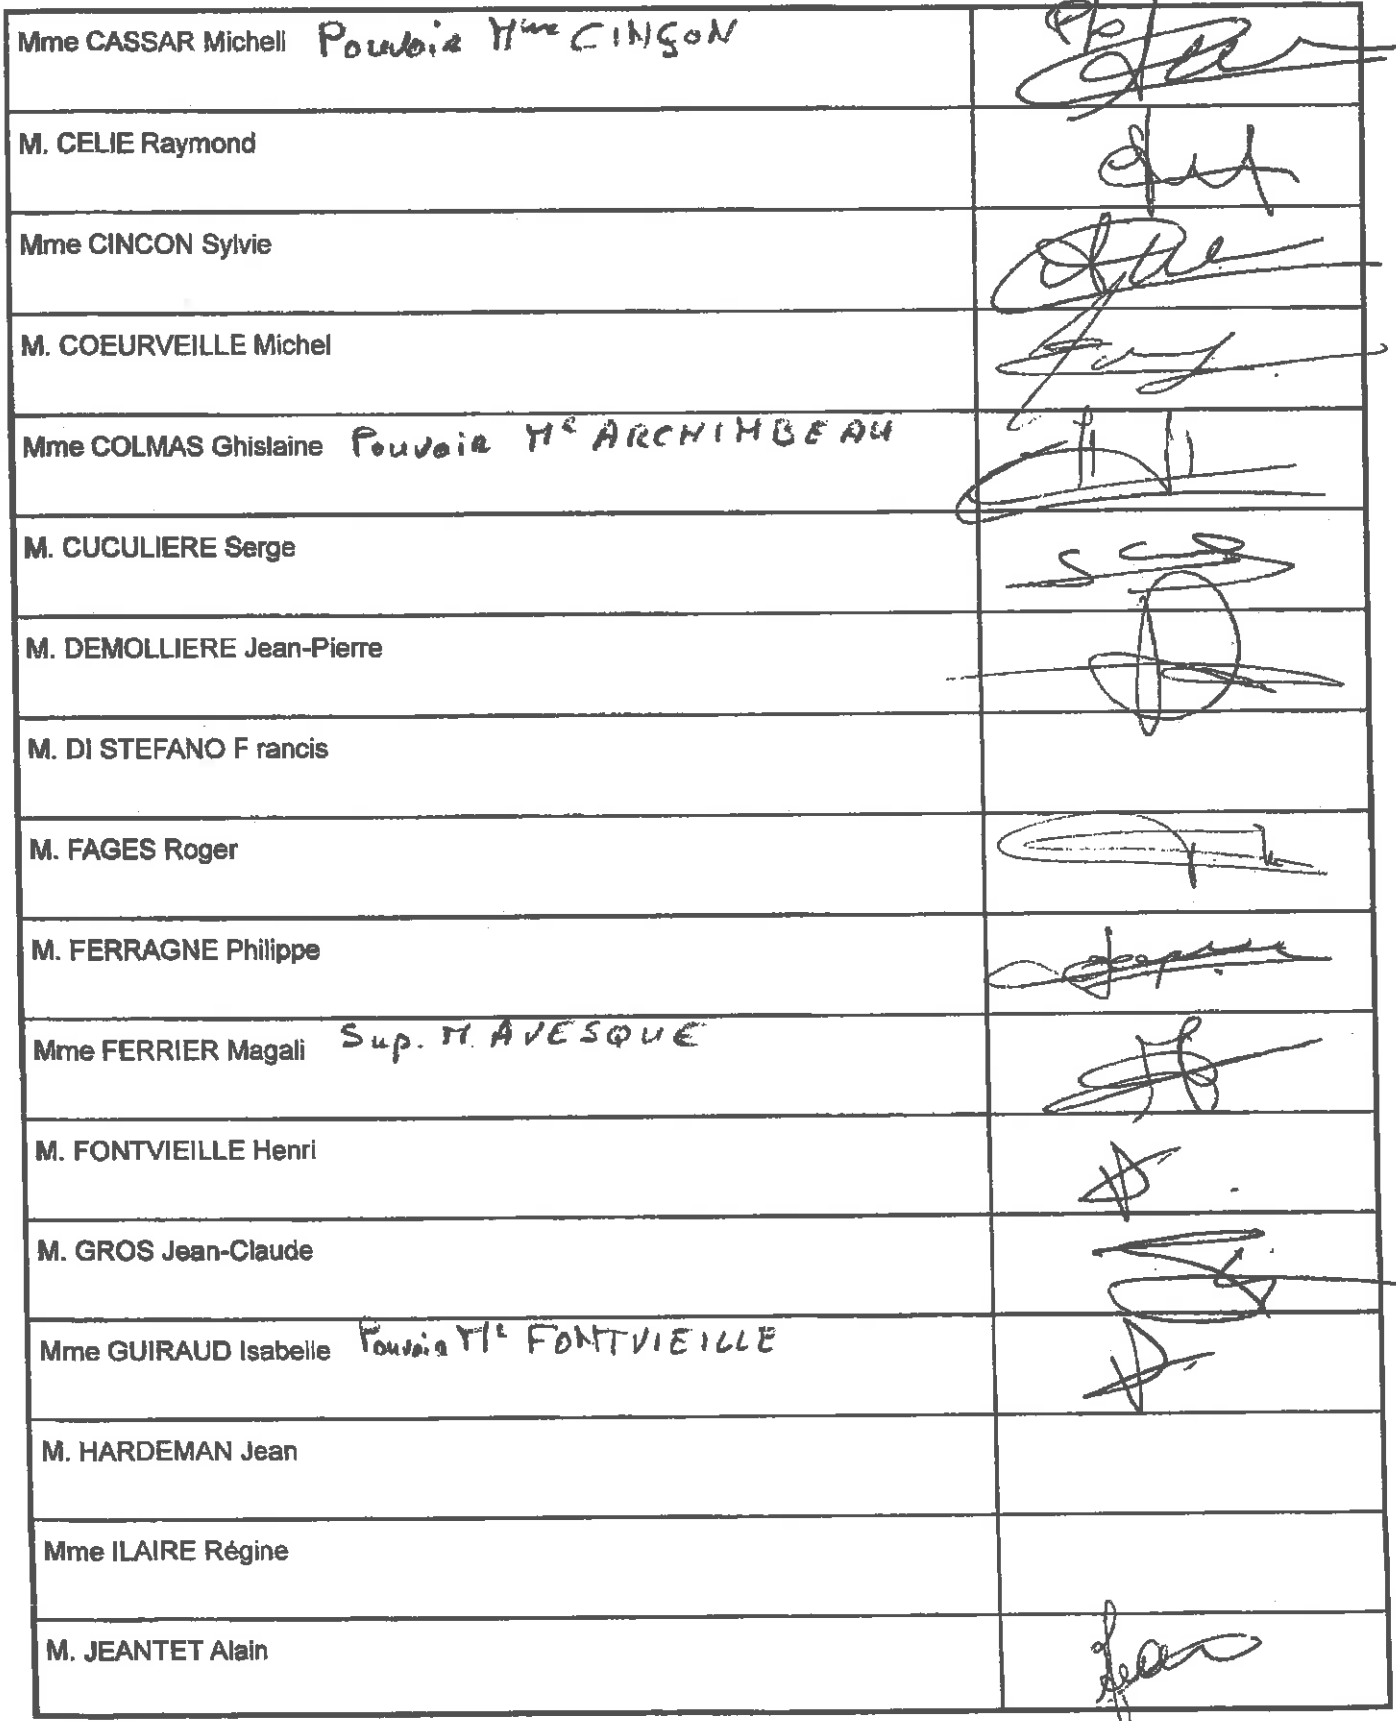 Mme CASSAR Micheli Pouvoir Mme CINÇON
M. CELIE Raymond
Mme CINCON Sylvie
M. COEURVEILLE Michel
Mme COLMAS Ghislaine Pouvoir Me ARCHIMBEAU
M. CUCULIERE Serge
M. DEMOLLIERE Jean-Pierre
M. DI STEFANO F rancis
M. FAGES Roger
M. FERRAGNE Philippe
Mme FERRIER Magali Sup. M. AVESQUE
M. FONTVIEILLE Henri
M. GROS Jean-Claude
Mme GUIRAUD Isabelle Pouvoir Me FONTVIEILLE
M. HARDEMAN Jean
Mme ILAIRE Régine
M. JEANTET Alain